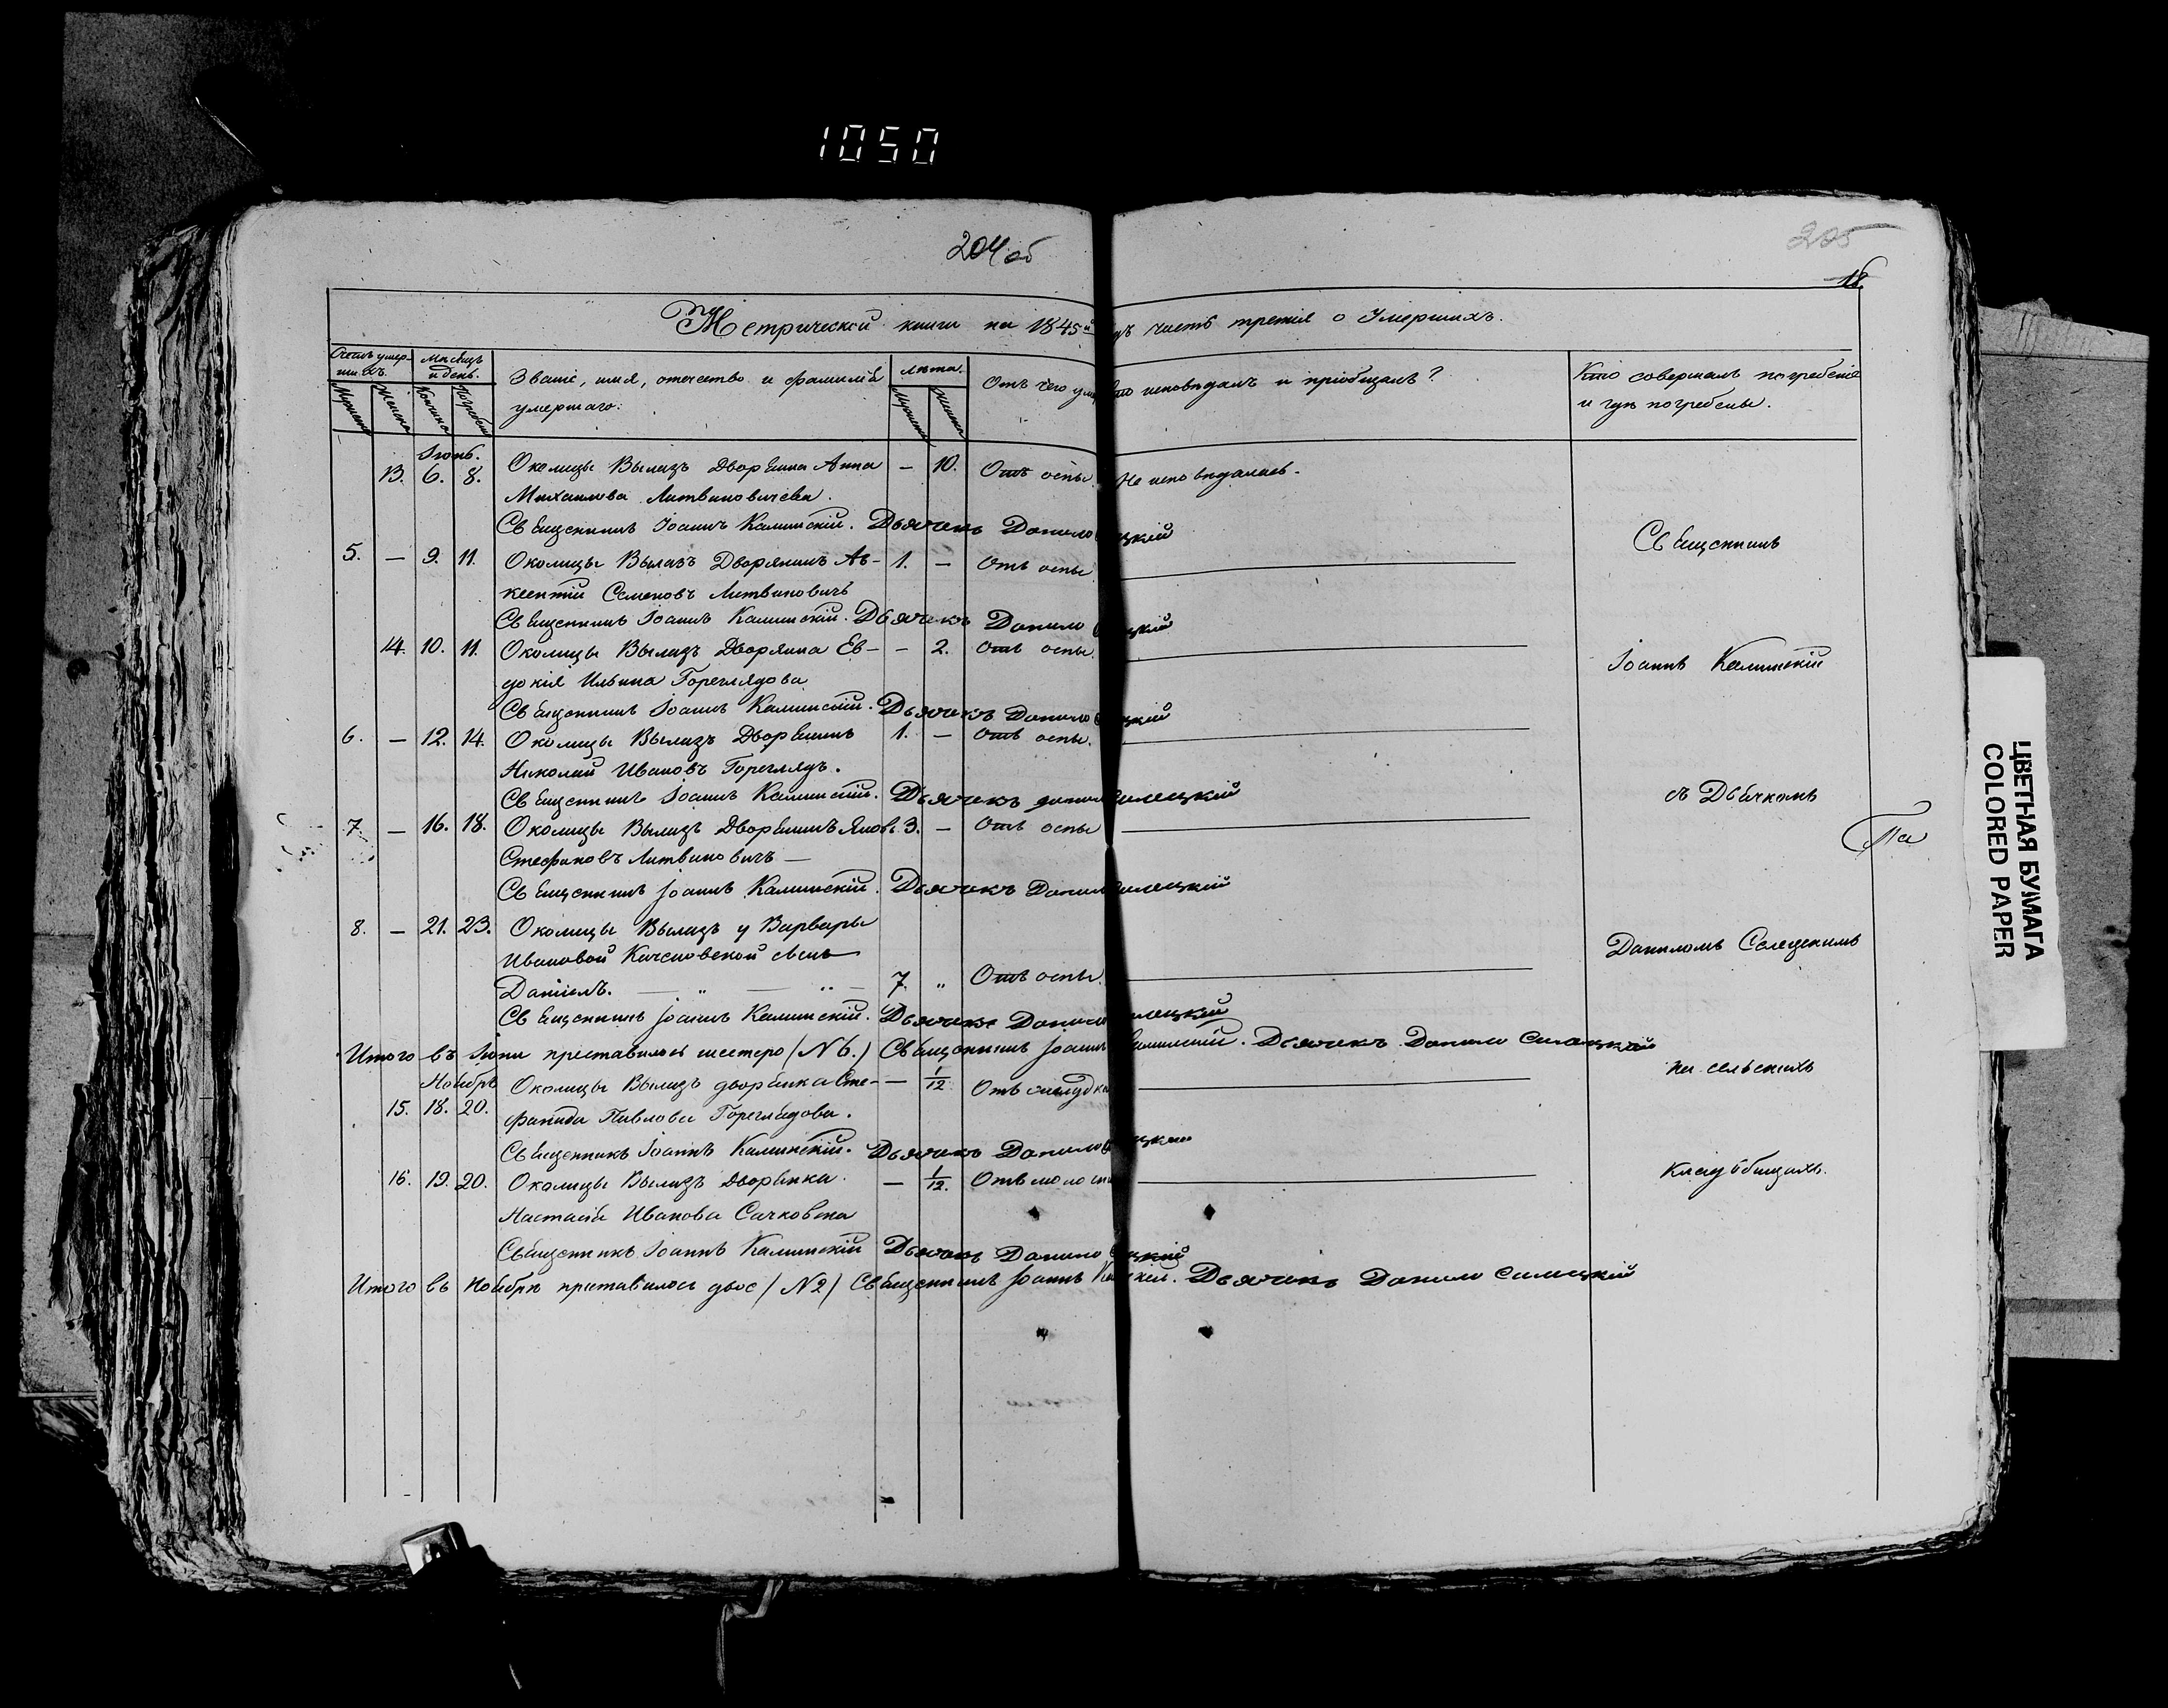 1050
204 об
205
18
Метрической книги на 1845й годъ часть третія о Умершихъ.
Счетъ умершихъ. Мужеска Женска
Мѣсяцъ и день. Кончины Погребенія
Званіе, имя, отечество и фамилія умершаго.
Лѣта. Мужеска Женска
Отъ чего умеръ
Кто исповѣдалъ и пріобщалъ?
Кто совершалъ погребеніе
и гдѣ погребены.
Іюнь.
13. 6. 8. Околицы Вылазъ Дворянка Анна — 10. Отъ оспы Не исповѣдалась.
Михаилова Литвиновичева.
Священникъ Іоаннъ Калинскій. Дьячекъ Данило
Священникъ
5. — 9. 11. Околицы Вылазъ Дворянинъ Ав- 1. — Отъ оспы
ксентій Семеновъ Литвиновичъ
Священникъ Іоаннъ Калинскій. Дьячекъ Данило
14. 10. 11. Околицы Вылазъ Дворянка Ев- — 2. Отъ оспы.
докія Ильина Гореглядова
Іоаннъ Калинскій
Священникъ Іоаннъ Калинскій. Дьячекъ Данило
6. — 12. 14. Околицы Вылазъ Дворянинъ 1. — Отъ оспы.
Николай Ивановъ Гореглядъ.
Священникъ Іоаннъ Калинскій. Дьячекъ Данило Силецкій
съ Дьячкомъ
7 — 16. 18. Околицы Вылазъ Дворянинъ Яковъ 3. — Отъ оспы
По
Стефановъ Литвиновичъ —
Священникъ Іоаннъ Калинскій. Дьячекъ Данило Силецкій
8. — 21. 23. Околицы Вылазъ у Варвары
Ивановой Качановской сынъ
Даніилъ. — „ — „ — 7 „ Отъ оспы.
Даниломъ Селецкимъ
Священникъ Іоаннъ Калинскій. Дьячекъ Данило Силецкій
Итого въ Іюнѣ преставилось шестеро (N 6.) Священникъ Іоаннъ Калинскій. Дьячекъ Данило Силецкій
на сельскихъ
Ноябрь
15. 18. 20. Околицы Вылазъ дворянка Сте- — 1/12 Отъ
фанида Павлова Гореглядова.
Священникъ Іоаннъ Калинскій. Дьячекъ Данило
16. 19. 20. Околицы Вылазъ Дворянка — 1/12. Отъ
кладбищахъ.
Настасія Иванова Сачковна
Священникъ Іоаннъ Калинскій Дьячекъ Данило
Итого въ Ноябрѣ преставилось двое (N 2) Священникъ Іоаннъ Калинскій. Дьячекъ Данило Силецкій
ЦВЕТНАЯ БУМАГА
COLORED PAPER